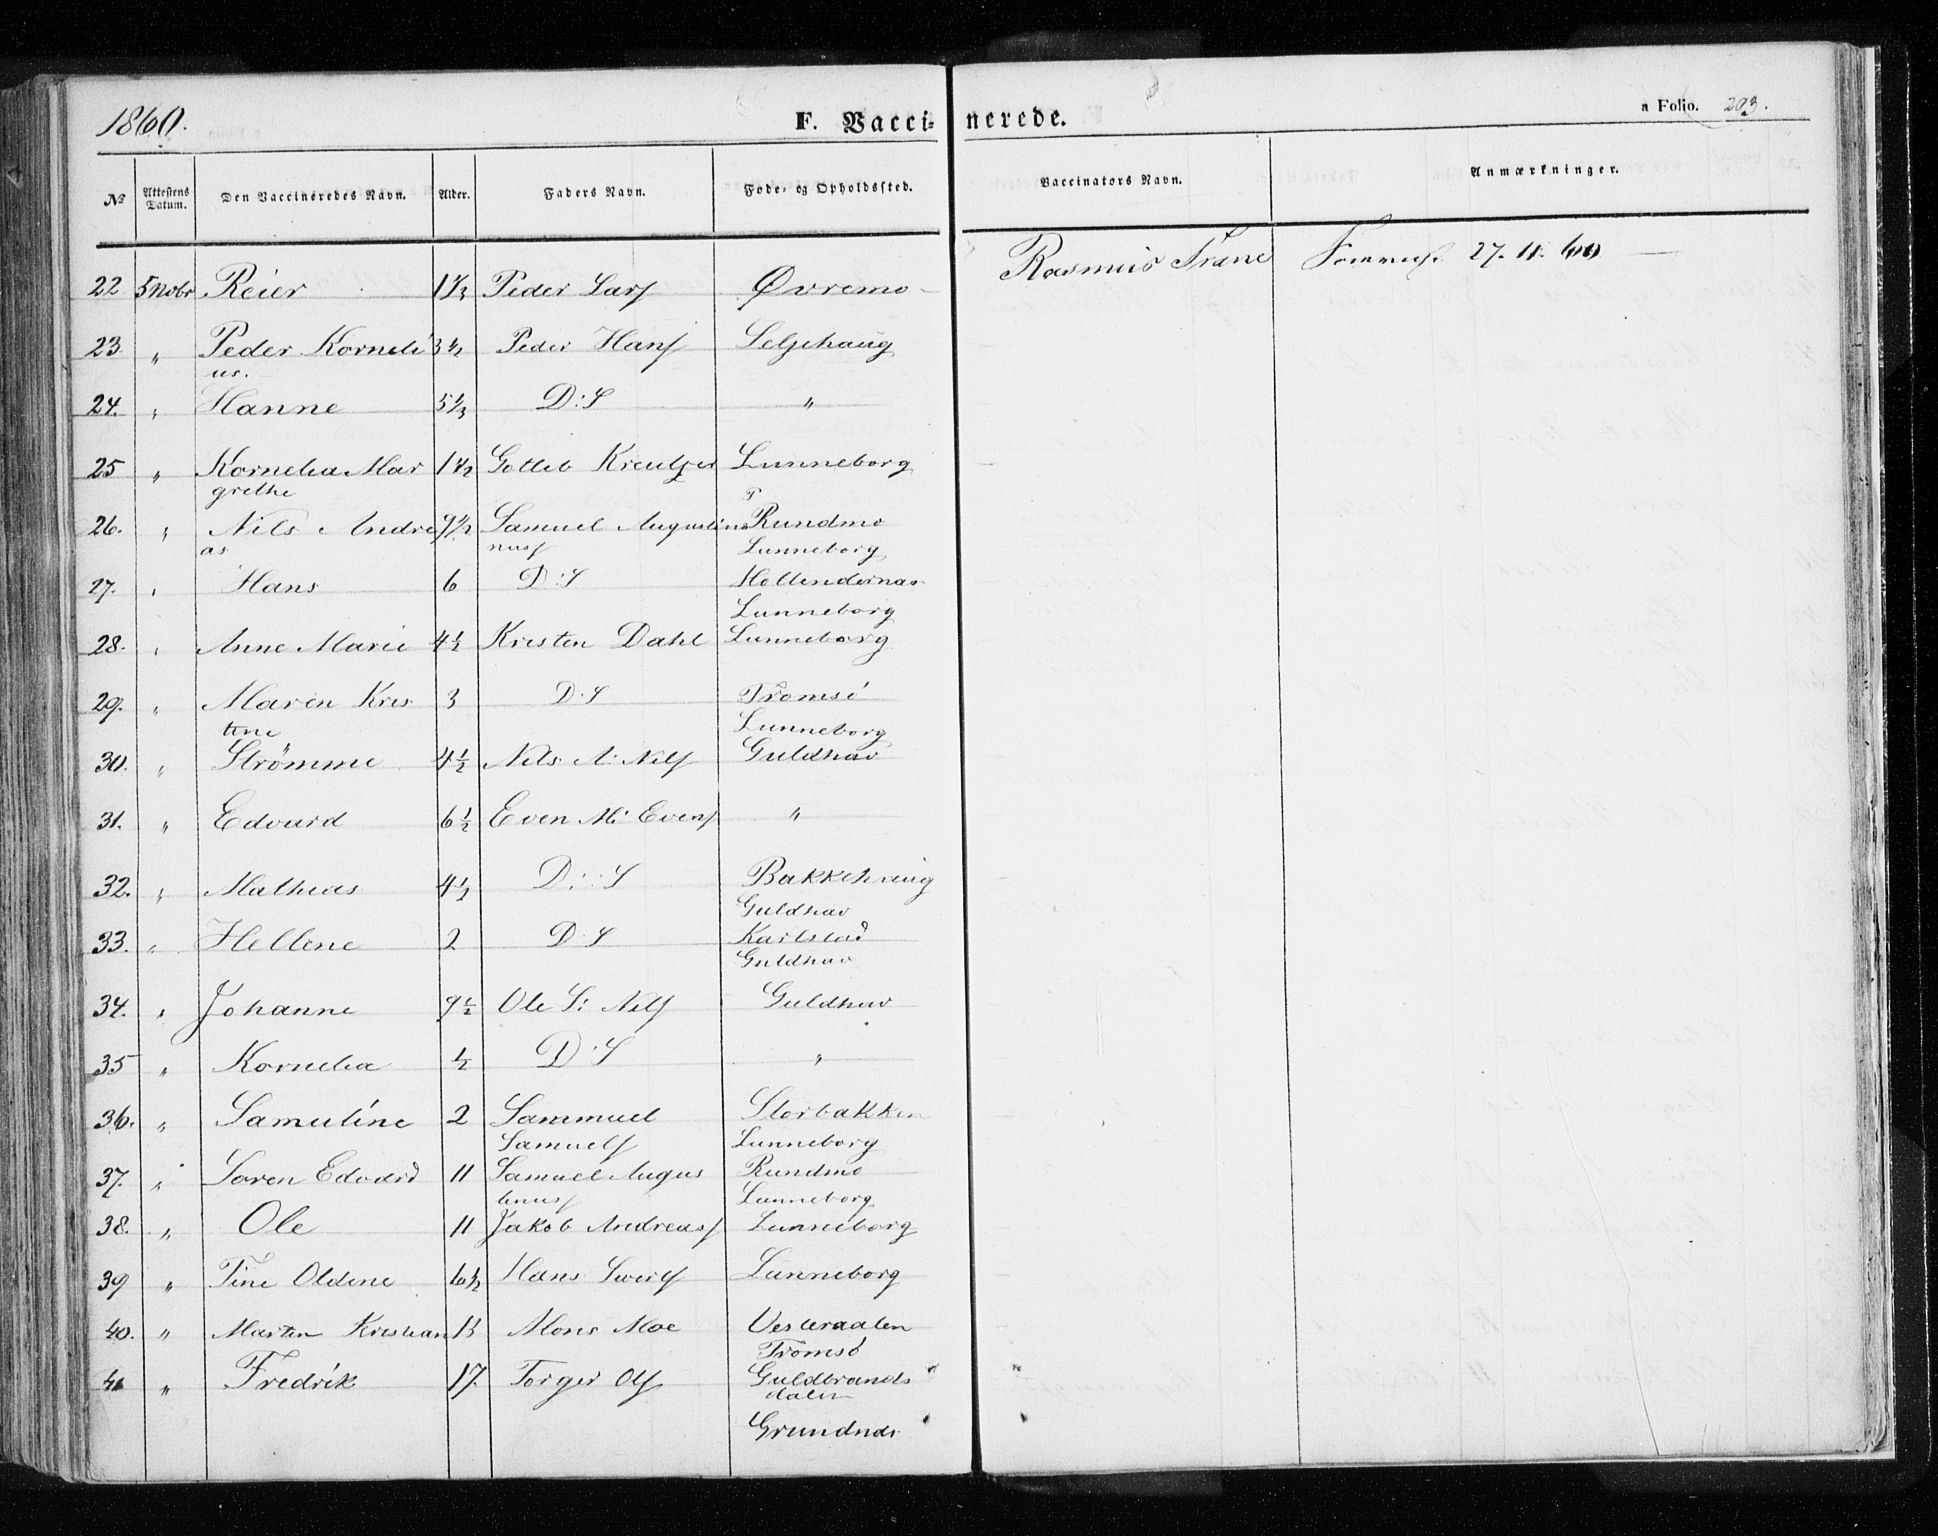 1860.
F. Vaccinerede.
a Folio. 203.
№ Attestens Datum. Den Vaccineredes Navn. Alder. Faders Navn. Føde- og Opholdssted. Vaccinators Navn. Anmærkninger.
22 5 Nobr Reier 1 1/3 Peder Lars Øvremo Rasmus Trane 27.11.60
23 " Peder Korneli 3 1/2 Peder Hans Seljehaug
us.
24. " Hanne 5 1/3 D:S "
25 " Kornelia Mar 1 1/2 Gotleb Kreutzer Lunneborg
grethe
26. " Nils Andre 9 1/2 Samuel Augustinus Rundmo
as nus Lunneborg
27. " Hans 6 D:S Hollendernæs
Lunneborg
28. " Anne Marie 4 1/2 Kristen Dahl Lunneborg
29. " Maren Kris 3 D:S Tromsø
tine Lunneborg
30. " Strømme 4 1/2 Nils A: Nils Guldhav
31. " Edvard 6 1/2 Even M: Evens "
32. " Mathias 4 1/2 D:S Bakkehaug
Guldhav
33. " Hellene 2 D:S Karlstad
Guldhav
34. " Johanne 9 1/2 Ole S: Nils Guldhav
35 " Kornelia 1/2 D:S "
36. " Samuline 2 Sammuel Storbakken
Samuels Lunneborg
37. " Soren Edvard 11 Samuel Augus Rundmo
tinus Lunneborg
38. " Ole 11 Jakob Andreas Lunneborg
39 " Tine Oldine 6 1/2 Hans Lunneborg
40. " Marten Kristian 13 Mons Moe Vesteraalen
Tromsø
41 " Fredrik 17. Torger Ols Guldbrands
dalen
Grundnds